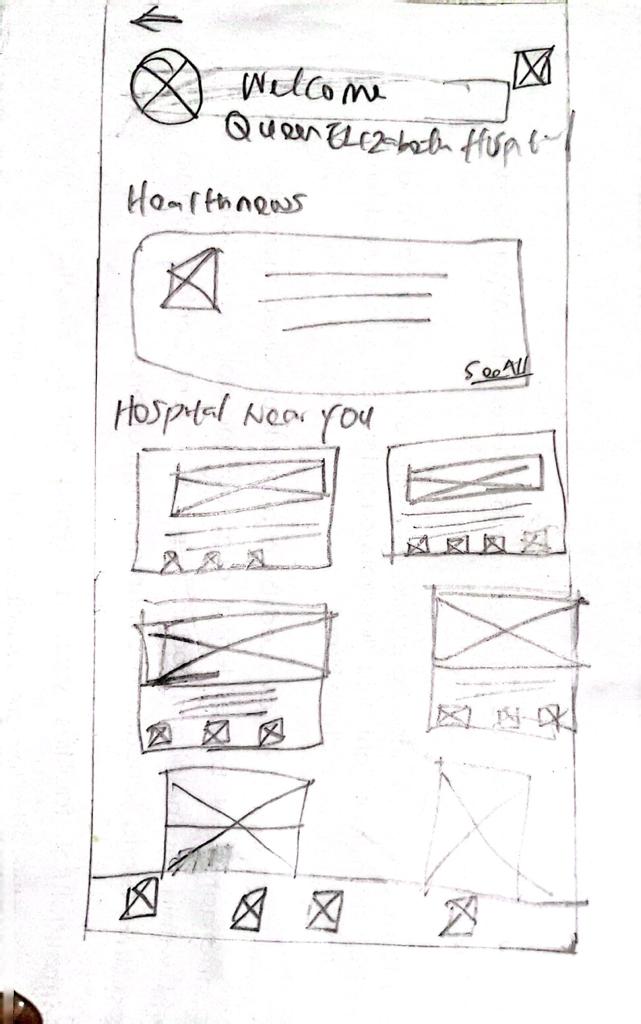 Welcome
Queen Elizabeth Hospital
Healthnews
See All
Hospital Near you